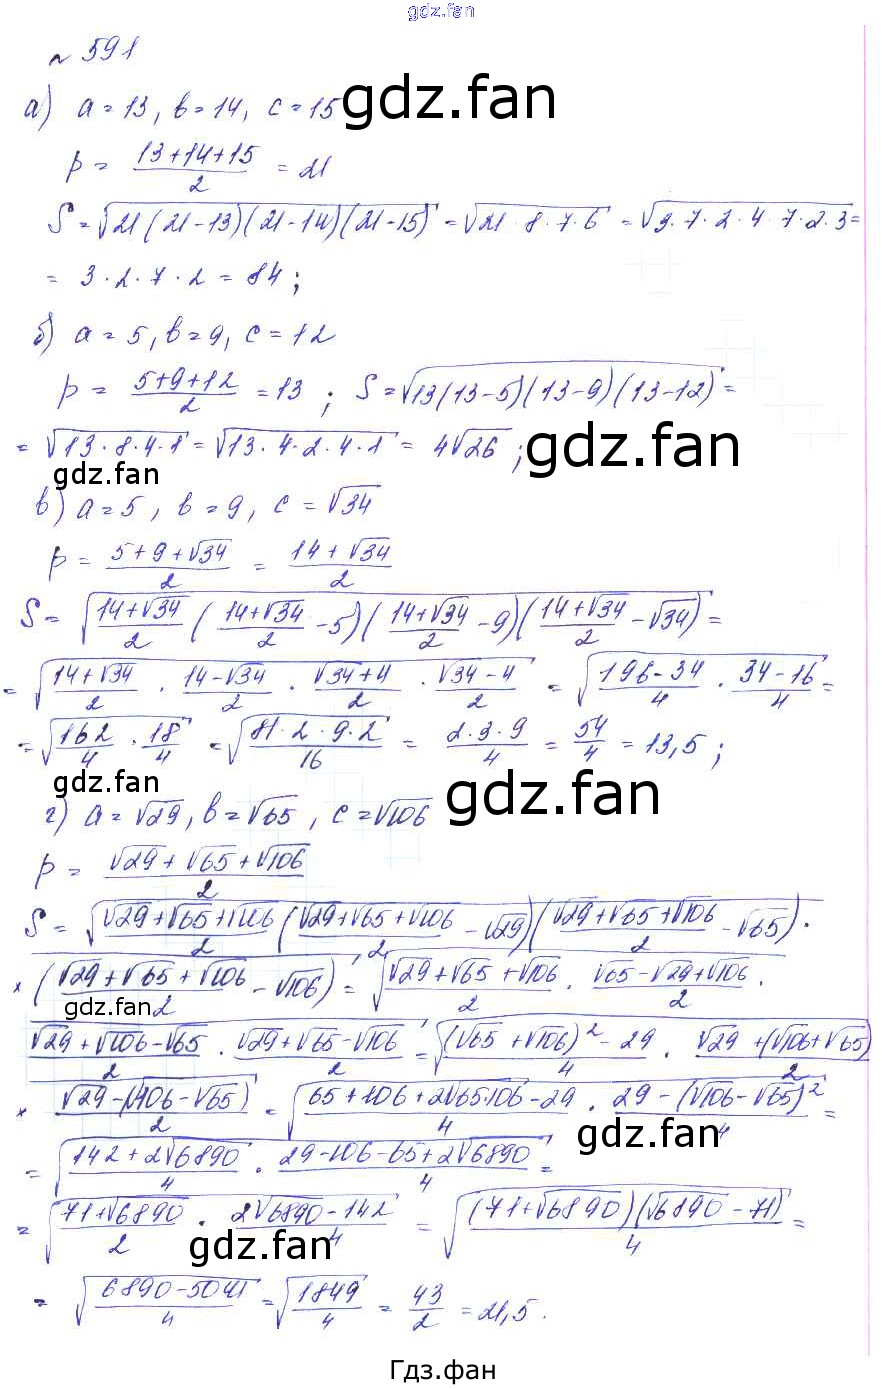 gdz.fan
№ 591
а) a = 13, b = 14, c = 15 gdz.fan
p = (13+14+15)/2 = 21
S = √(21(21-13)(21-14)(21-15)) = √(21·8·7·6) = √(3·7·2·4·7·2·3) =
= 3·2·7·2 = 84;
б) a = 5, b = 9, c = 12
p = (5+9+12)/2 = 13; S = √(13(13-5)(13-9)(13-12)) =
= √(13·8·4·1) = √(13·4·2·4·1) = 4√26; gdz.fan
gdz.fan
в) a = 5, b = 9, c = √34
p = (5+9+√34)/2 = (14+√34)/2
S = √((14+√34)/2 ((14+√34)/2 - 5)((14+√34)/2 - 9)((14+√34)/2 - √34)) =
= √((14+√34)/2 · (14-√34)/2 · (√34+4)/2 · (√34-4)/2) = √((196-34)/4 · (34-16)/4) =
= √(162/4 · 18/4) = √((81·2·9·2)/16) = (2·3·9)/4 = 54/4 = 13,5;
gdz.fan gdz.fan
г) a = √29, b = √65, c = √106
p = (√29+√65+√106)/2
S = √((√29+√65+√106)/2 ((√29+√65+√106)/2 - √29)((√29+√65+√106)/2 - √65) ·
× ((√29+√65+√106)/2 - √106)) = √((√29+√65+√106)/2 · (√65-√29+√106)/2 ·
gdz.fan
(√29+√106-√65)/2 · (√29+√65-√106)/2) = √(((√65+√106)²-29)/4 · (√29+(√106+√65))/2
× (√29-(√106-√65))/2 = √((65+106+2√65·106-29)/4 · (29-(√106-√65)²)/4) =
gdz.fan
= √((142+2√6890)/4 · (29-106-65+2√6890)/4) =
= √((71+√6890)/2 · (2√6890-142)/4) = √(((71+√6890)(√6890-71))/4) =
gdz.fan
= √((6890-5041)/4) = √(1849/4) = 43/2 = 21,5.
Гдз.фан